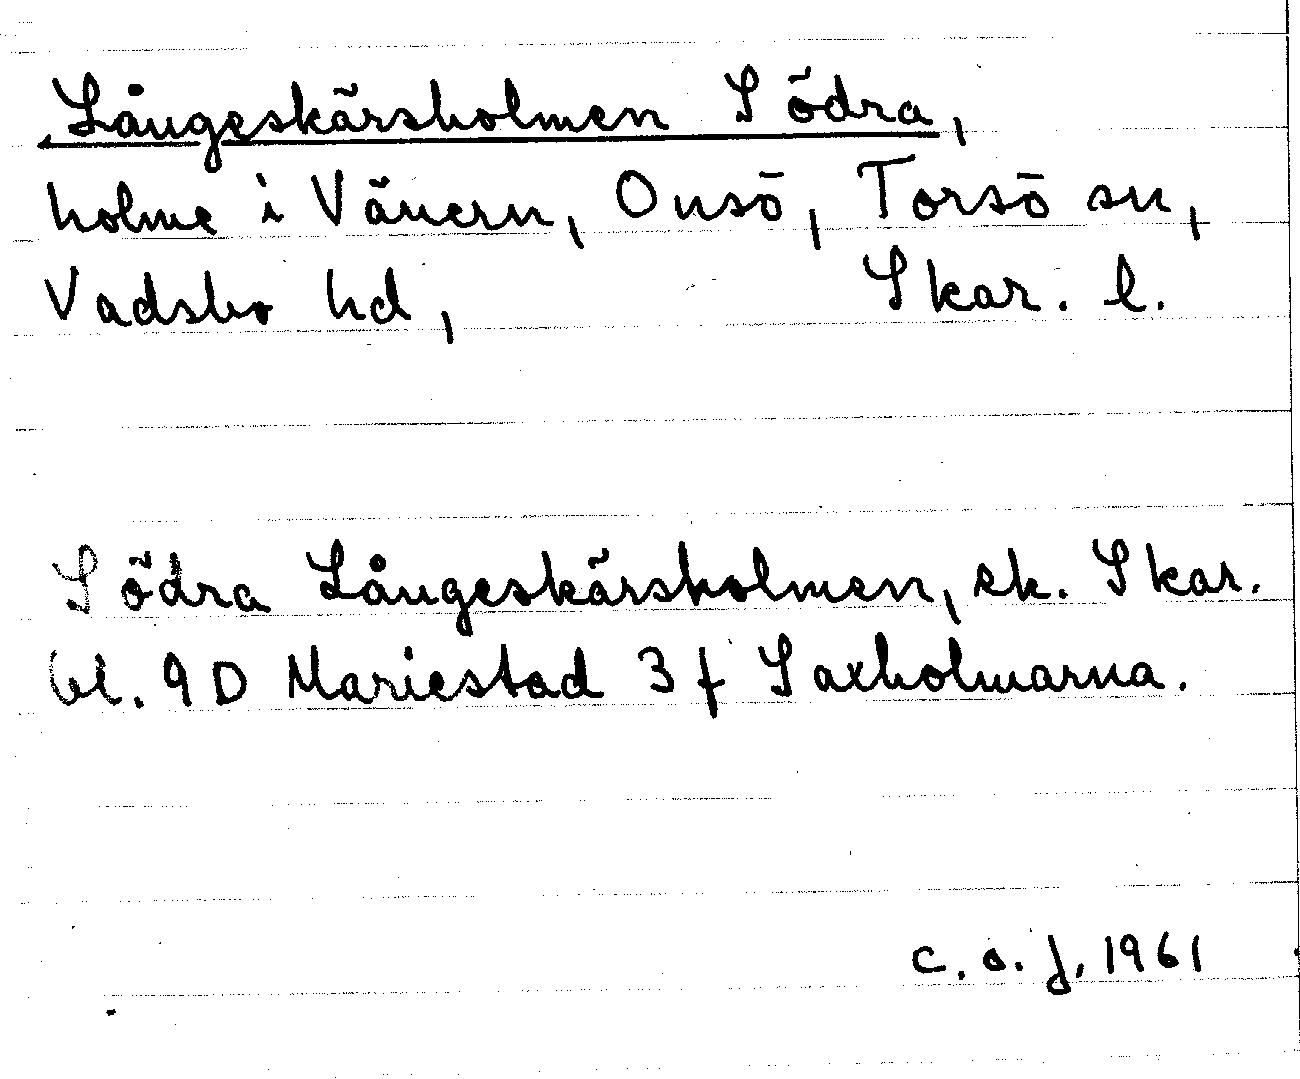 Långeskärsholmen Södra,
holme i Vänern, Onsö, Torsö sn,
Vadsbo hd, Skar. l.
Södra Långeskärsholmen, ek. Skar.
bl. 9D Mariestad 3f Saxholmarna.
C.a.J. 1961